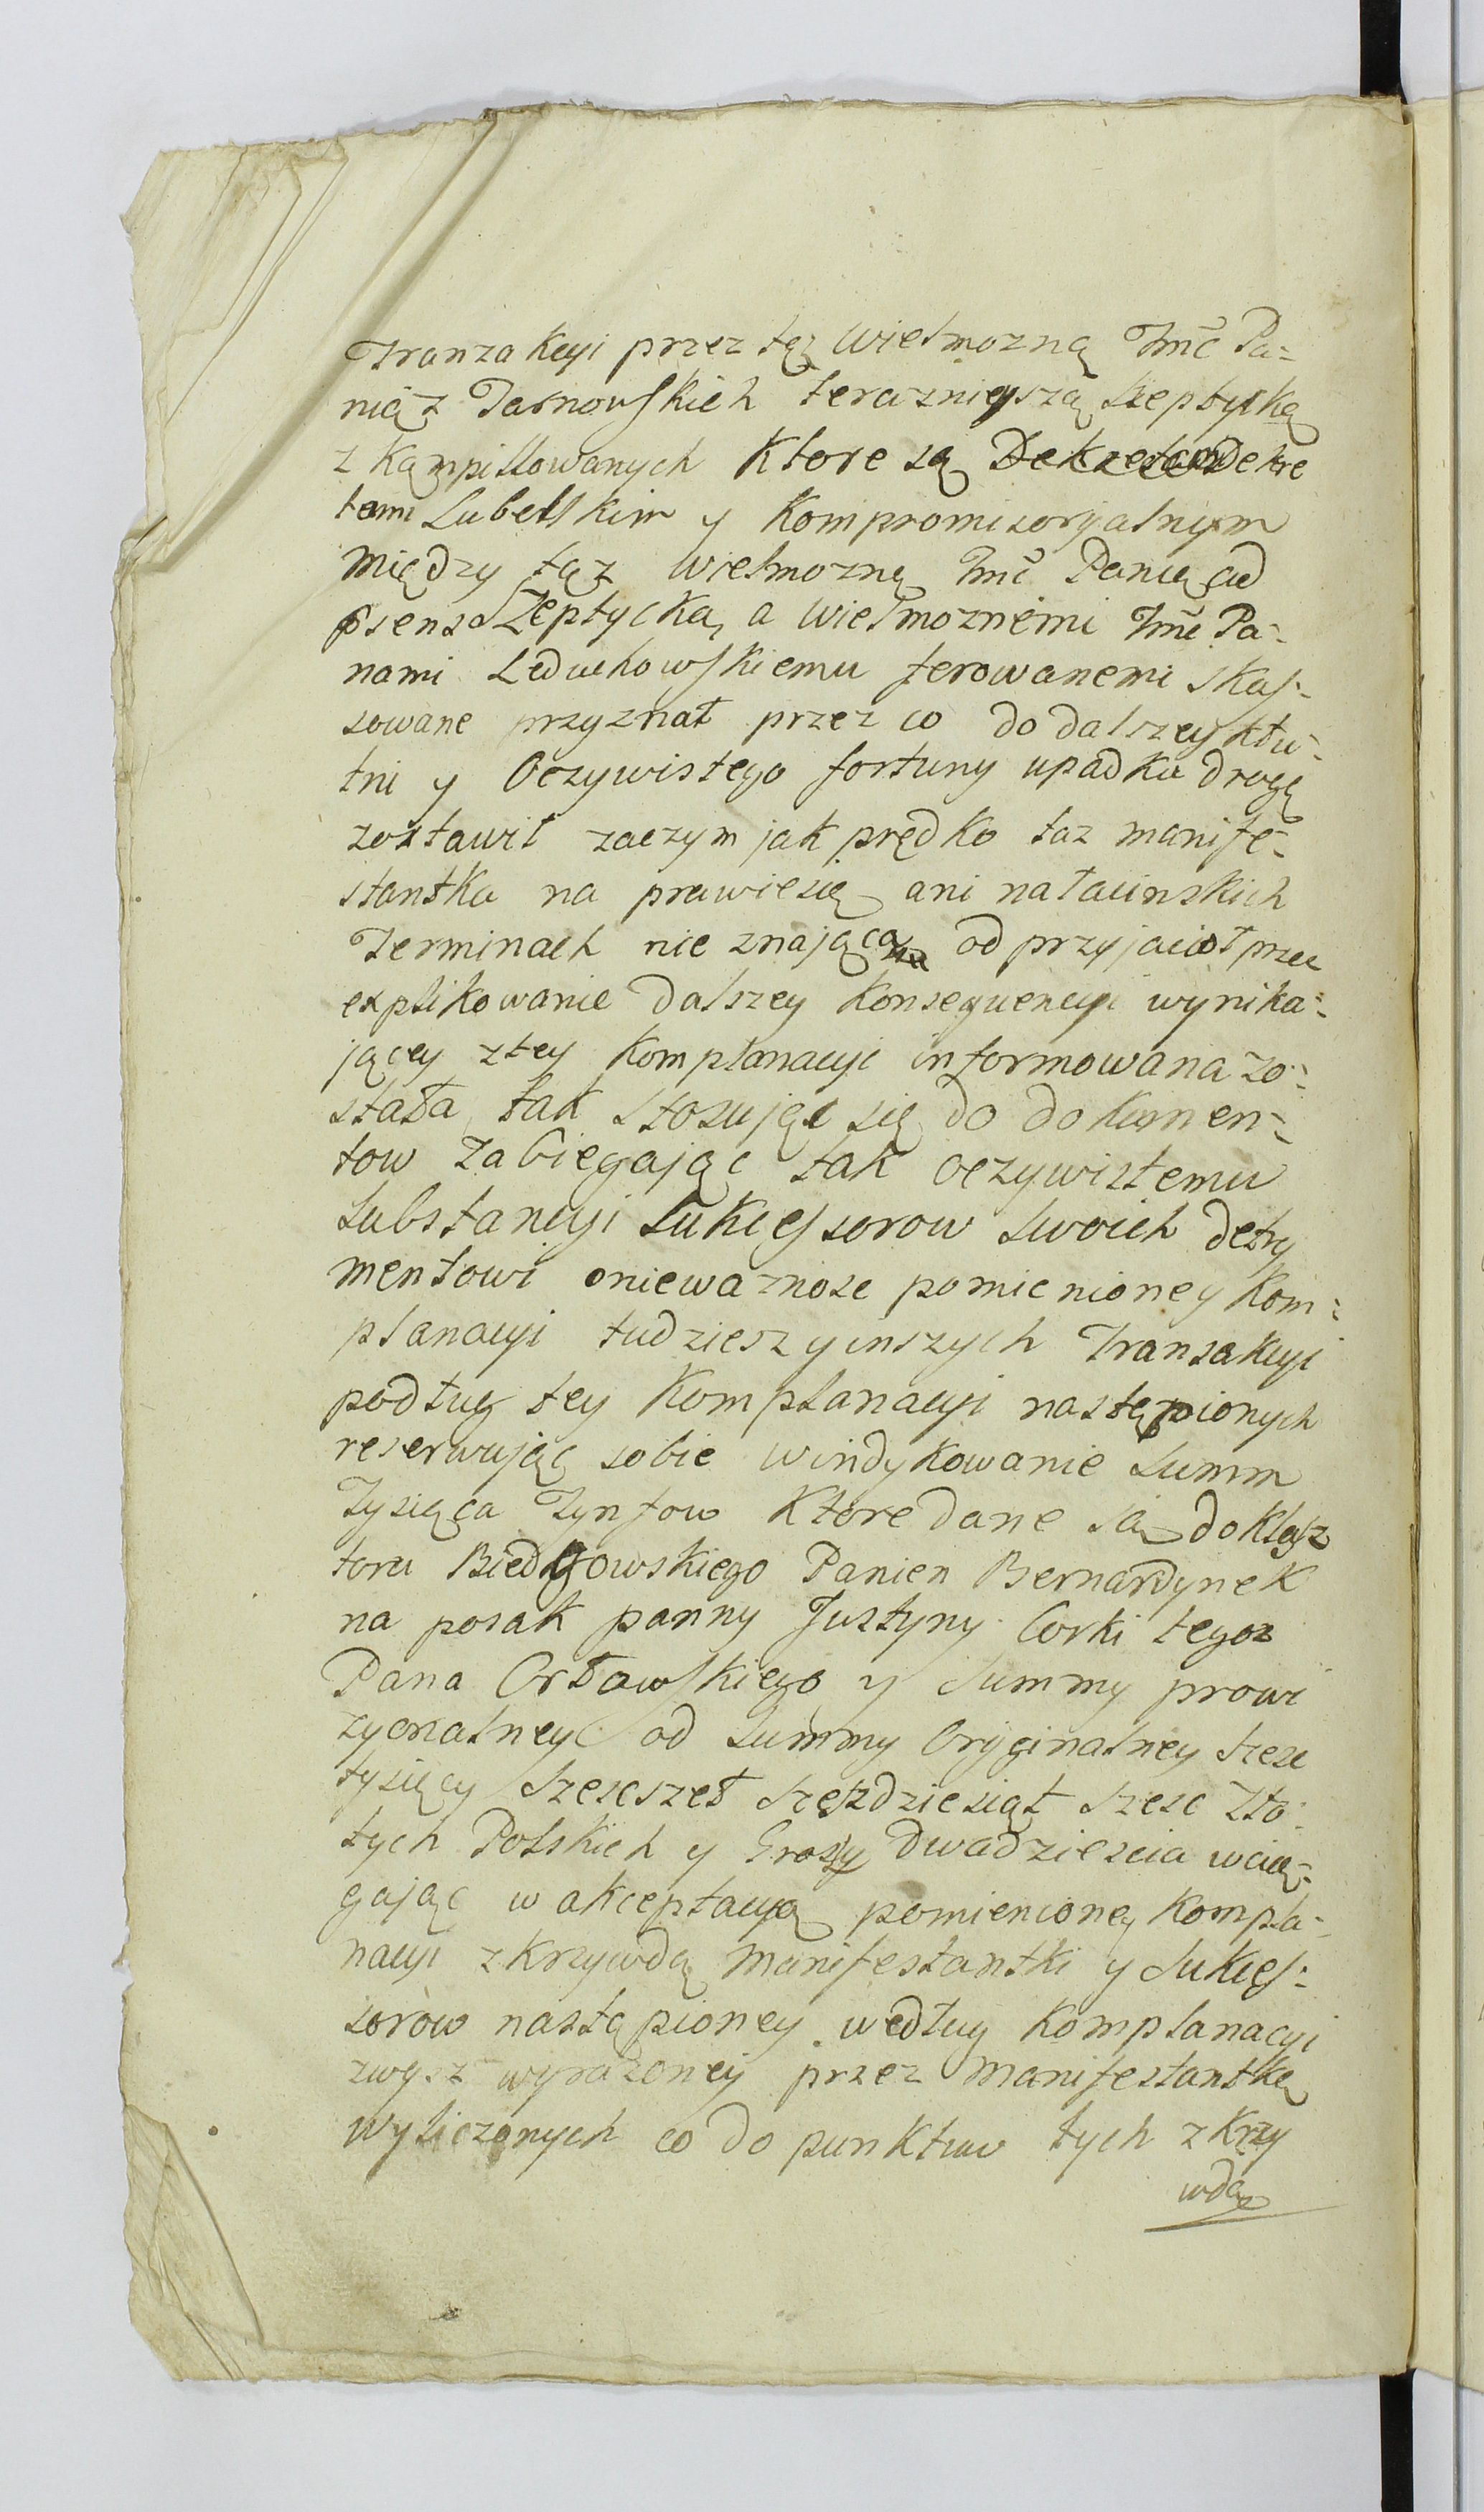 Tranzakcyi przez tęz Wielmozną Jmć Pa=
nią z Tarnowskich teraznieyszą Szeptycką
z Kąmpillowanych Ktore są Dekre
tami Lubelskim y Kompromisoryalnym
Między tąz Wielmozną Jmć Panią ad
psens Szeptycką, a Wielmoznemi Jmć Pa=
nami Leduchowskiemu ferowanemi skas=
sowane przyznał przez co do dalszey kłu=
tni y Oczywistego fortuny upadku drogę
zostawił zaczym jak prędko taz manife=
stantka na prawie się ani na łacinskich
Terminach nie znająca od przyjacioł prze
explikowanie dalszey Konsequencyi wynika=
jącey z tey Komplanacyi informowana zo=
stała, tak stosując się do dokumen=
tow zabiegając tak oczywistemu
Substancyi Sukcessorow swoich detry
mentowi o niewaznosc pomienioney Kom=
planacyi tudziesz y inszych Transakcyi
podług tey Komplanacyi nastąpionych
reserwując sobie windykowanie Summ
Tysiąca Tynfow Ktore dane są do Klasz
toru Panien Bernardynek
na posak panny Justyny Corki tegoz
Pana Orłowskiego y Summy prowi
zyonalney od Summy Oryginalney szesc
tysięcy szescszet szeszdziesiąt szesc Zło=
tych Polskich y Groszy dwadziescia wcią=
gając w akceptacyą pomienioney Kompla=
nacyi z Krzywdą Manifestantki y Sukces=
sorow nastąpioney według Komplanacyi
zwysz wyrazoney przez Manifestantkę
wyliczonych co do punktuw tych z Krzy
wdą